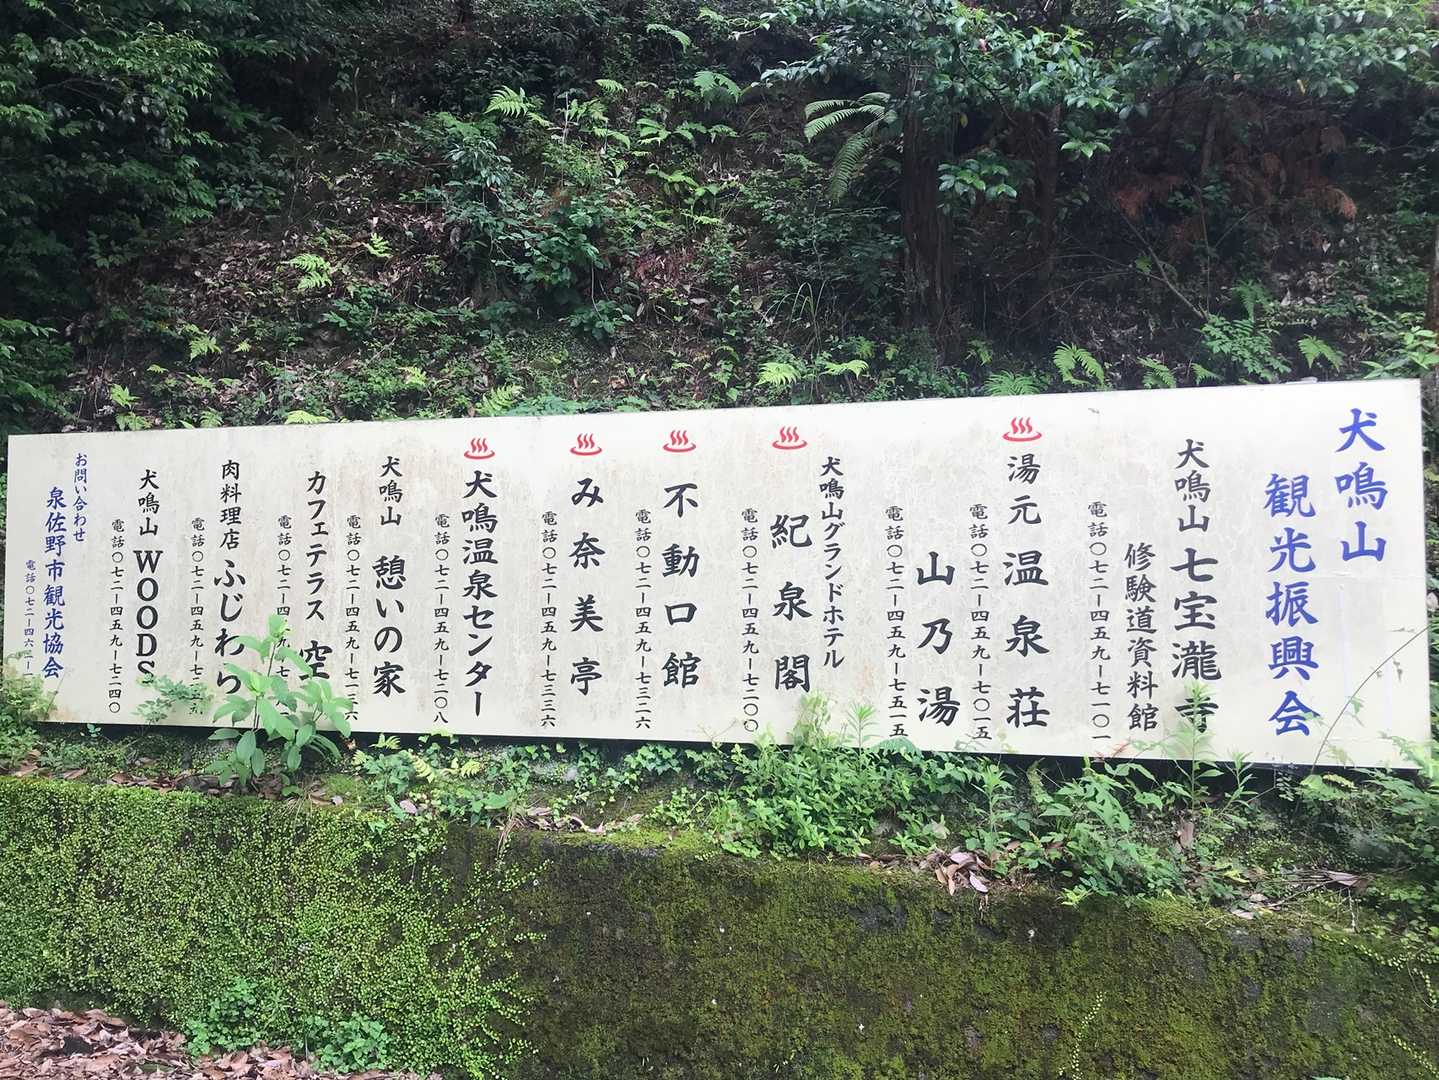 犬鳴山
観光振興会
犬鳴山七宝瀧寺
修験道資料館
電話〇七二ー四五九ー七一〇一
湯元温泉荘
電話〇七二ー四五九ー七〇一五
山乃湯
電話〇七二ー四五九ー七五一五
犬鳴山グランドホテル
紀泉閣
電話〇七二ー四五九ー七二〇〇
不動口館
電話〇七二ー四五九ー七三二六
み奈美亭
電話〇七二ー四五九ー七三三六
犬鳴温泉センター
電話〇七二ー四五九ー七二〇八
犬鳴山 憩いの家
電話〇七二ー四五九ー七二三六
カフェテラス 空
電話〇七二ー四五九ー七
肉料理店 ふじわら
電話〇七二ー四五九ー七二
犬鳴山 WOODS
電話〇七二ー四五九ー七二四〇
お問い合わせ
泉佐野市観光協会
電話〇七二ー四六